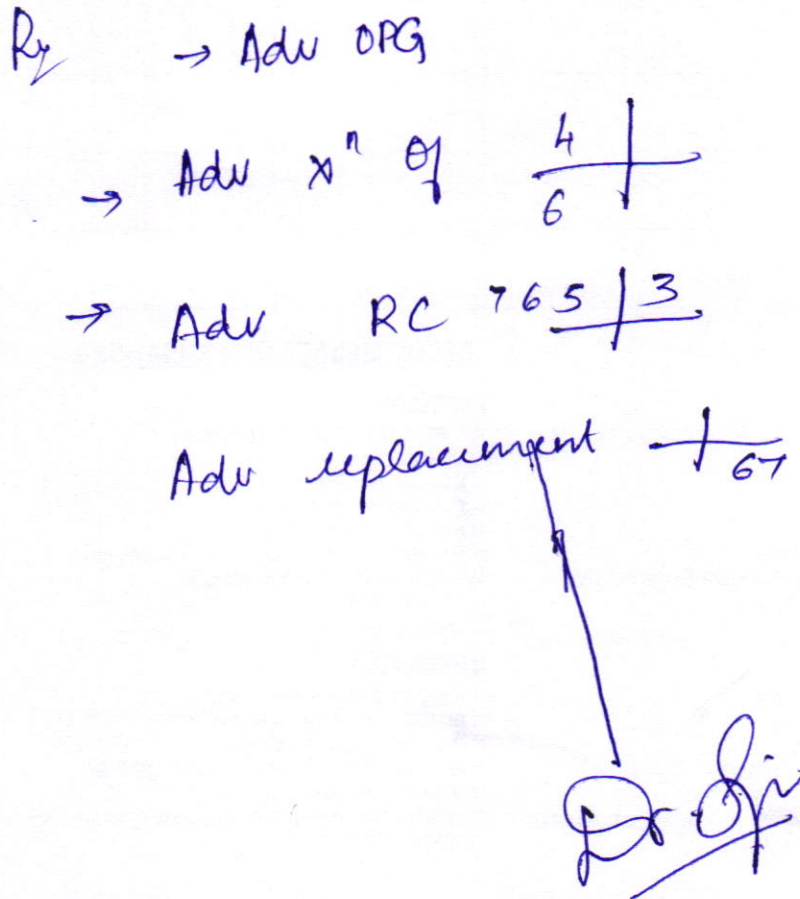 Rx → Adv OPG
→ Adv xⁿ of 4|
6|
→ Adv RC 765|3
Adv replacement |67
Dr.